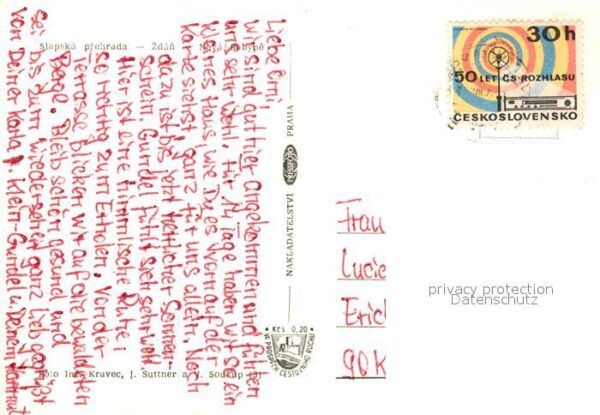 Slapská přehrada – Ždáň – Nová Rabyně
Liebe Omi,
Wir sind gut hier angekommen und fühlen
uns sehr wohl. Für 14 Tage haben wir so ein
kleines Haus, wie Du es vorn auf der
Karte siehst ganz für uns allein. Noch
dazu ist bis jetzt herrlicher Sonnen-
schein. Gundel fühlt sich sehr wohl
Hier ist eine himmlische Ruhe,
so richtig zum Erholen. Von der
Terrasse blicken wir auf die bewaldeten
Berge. Bleib schön gesund und
bis zum Wiedersehn ganz lieb gegrüßt
Sei
von Deiner Klein-Gundel u. Deinem Hartmut
Foto Inž. Kravec, J. Suttner a V. Soukup (3)
NAKLADATELSTVÍ PRESSFOTO PRAHA
Kčs 0,20
VE PROSPĚCH CESTOVNÍHO RUCHU
30 h
50 LET ČS. ROZHLASU
ČESKOSLOVENSKO
Frau
Lucie
Erich
90K
privacy protection
Datenschutz